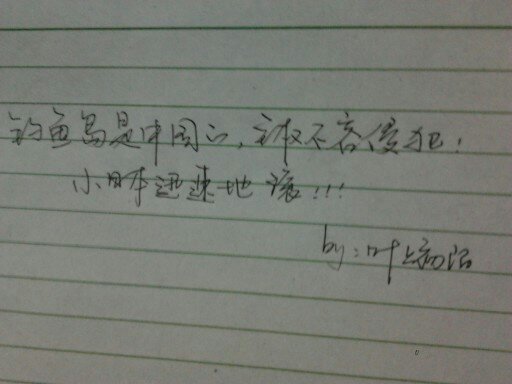 钓鱼岛是中国的,主权不容侵犯!
小日本迅速地滚!!!
by:叶上初阳